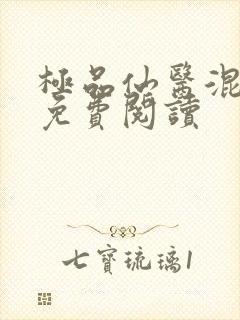 極品仙醫混
免費閱讀
七寶琉璃1